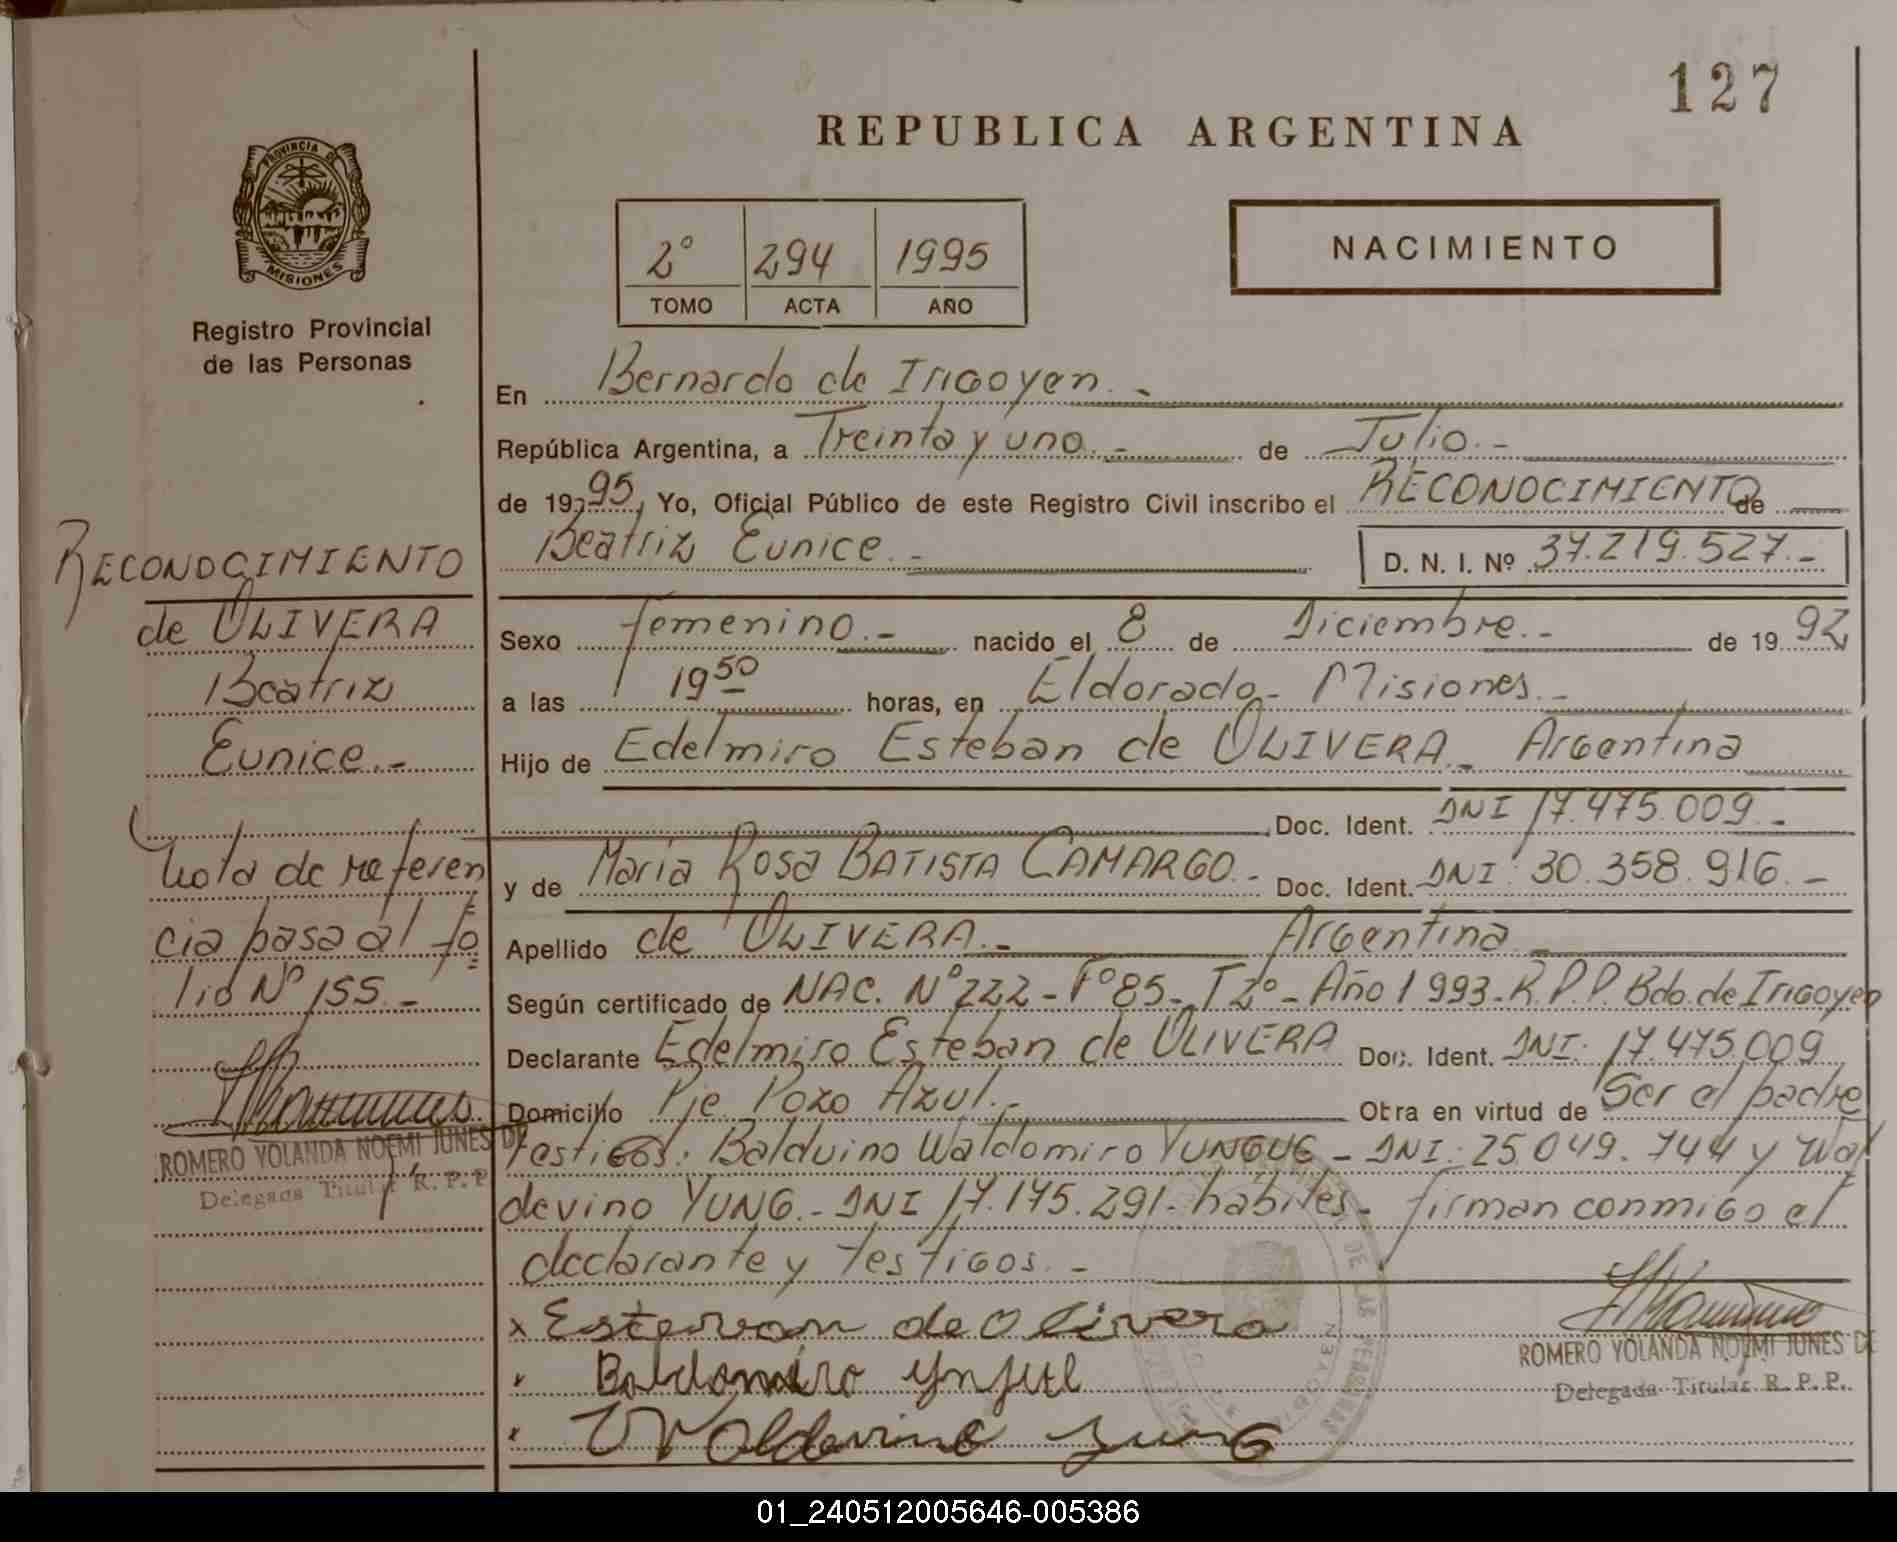 127
REPUBLICA ARGENTINA
PROVINCIA DE
MISIONES
Registro Provincial
de las Personas
2º 294 1995
TOMO ACTA AÑO
NACIMIENTO
En Bernardo de Irigoyen.-
República Argentina, a Treinta y uno.- de Julio.-
de 1995, Yo, Oficial Público de este Registro Civil inscribo el RECONOCIMIENTO de
Beatriz Eunice.- D. N. I. Nº 37.219.527.-
Sexo femenino.- nacido el 8 de Diciembre.- de 1992
a las 19 50 horas, en Eldorado- Misiones.-
Hijo de Edelmiro Esteban de OLIVERA.- Argentina
Doc. Ident. DNI 17.475.009.-
y de Maria Rosa BATISTA CAMARGO.- Doc. Ident. DNI: 30.358.916.-
Apellido de OLIVERA.- Argentina
Según certificado de NAC. Nº 222- Fº 85- T 2º- Año 1993- R.P.P. Bdo. de Irigoyen
Declarante Edelmiro Esteban de OLIVERA Doc. Ident. DNI: 17.475.009
Domicilio Pje Pozo Azul.- Obra en virtud de Ser el padre
Testigos: Balduino Waldomiro YUNGUE - DNI: 25.049.744 y Wal
devino YUNG.- DNI 17.175.291- habiles- firman conmigo el
declarante y testigos.-
x Estevan de Olivera
Baldomiro
x Waldevino Yung
ROMERO YOLANDA NOEMI JUNES DE
Delegada Titular R. P. P.
RECONOCIMIENTO
de OLIVERA
Beatriz
Eunice.-
Nota de referen
cia pasa al fo
lio Nº 155.-
ROMERO YOLANDA NOEMI JUNES DE
Delegada Titular R. P. P
01_240512005646-005386